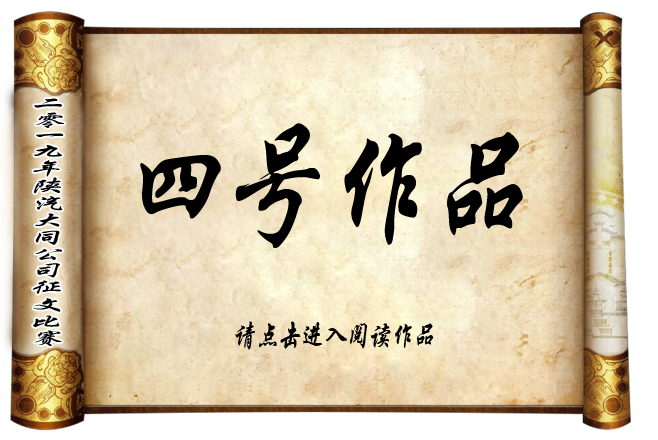 二零一九年陕汽大同公司征文比赛
四号作品
请点击进入阅读作品